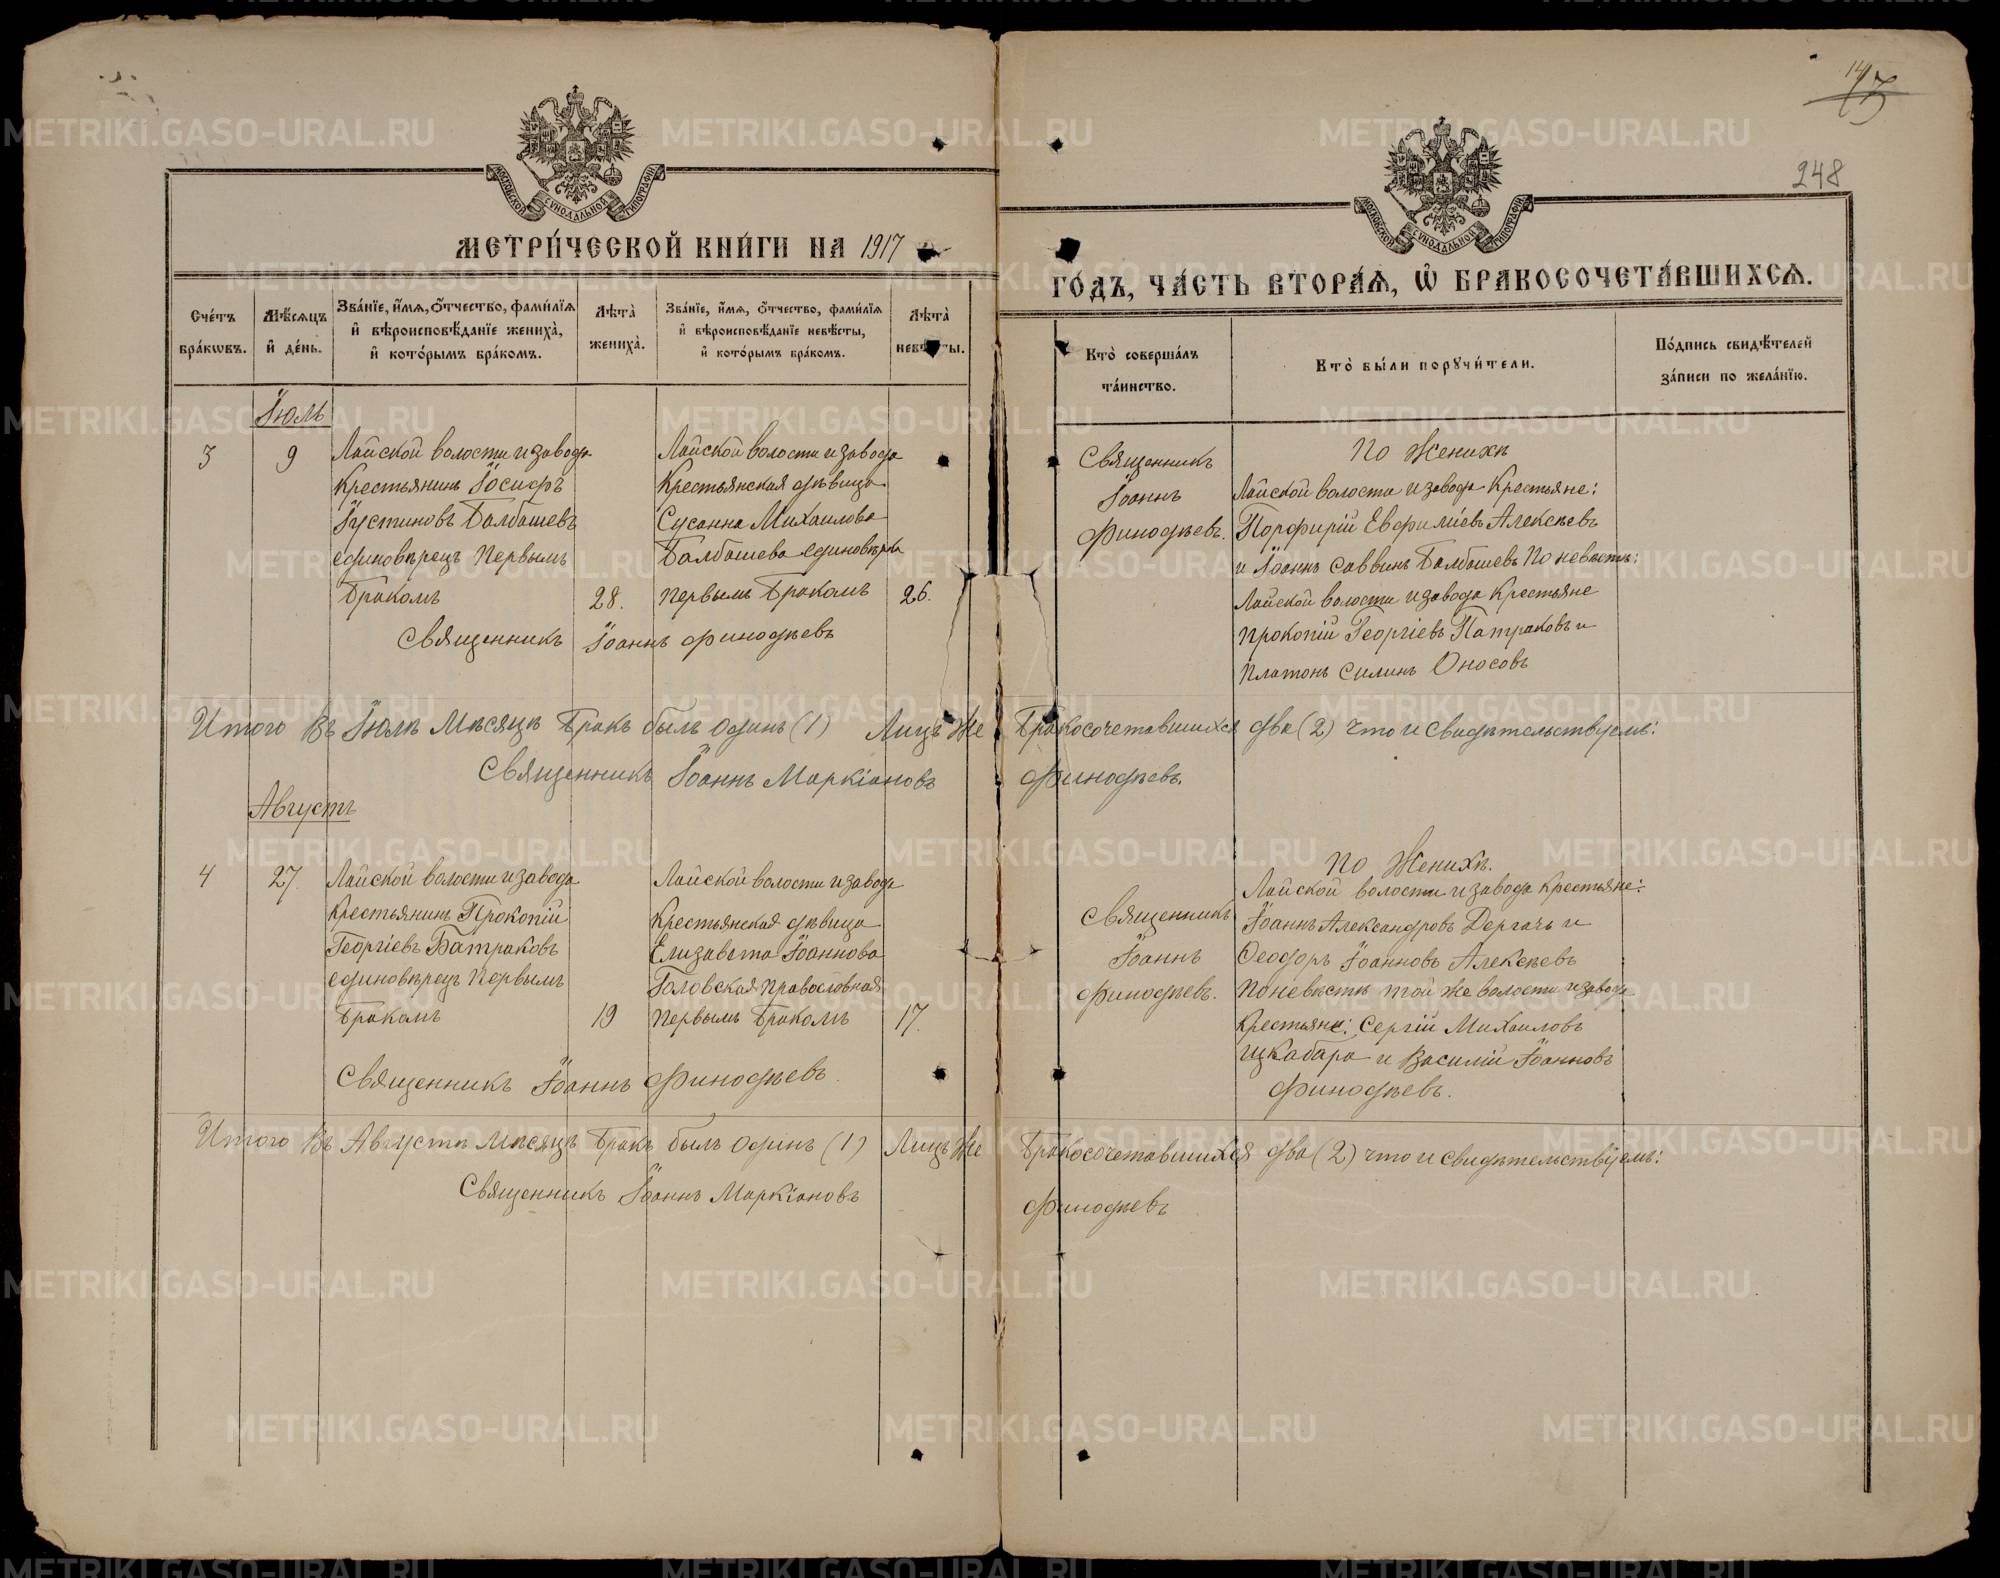 МЕТРИ́ЧЕСКОЙ КНИ́ГИ НА 1917
ГО́ДЪ, ЧА́СТЬ ВТОРА́Ѧ, Ѽ БРАКОСОЧЕТА́ВШИХСѦ.
14
248
Сче́тъ бра́кѡвъ.
Мѣ́сяцъ и҆ де́нь.
Зва́нїе, и҆́мѧ, ѻ҆́тчество, фами́лїѧ и҆ вѣроисповѣ́данїе жениха̀, и҆ кото́рымъ бра́комъ.
Лѣ́та̀ жениха̀.
Зва́нїе, и҆́мѧ, ѻ҆́тчество, фами́лїѧ и҆ вѣроисповѣ́данїе невѣ́сты, и҆ кото́рымъ бра́комъ.
Лѣ́та̀ невѣ́сты.
Кто̀ соверша́лъ та́инство.
Кто̀ бы́ли порꙋчи́тели.
По́дпись свидѣ́телей за́писи по жела́нїю.
Іюль
3
9
Лайской волости и завода
Крестьянинъ Іосифъ
Іустиновъ Балбашевъ
единовѣрецъ Первымъ
Бракомъ
28.
Лайской волости и завода
Крестьянская дѣвица
Сусанна Михаилова
Балбашева единовѣр.
Первымъ Бракомъ
26.
Священникъ Іоаннъ Финодѣевъ
Священникъ
Іоаннъ
Финодѣевъ.
По Женихѣ
Лайской волости и завода Крестьяне:
Порфирій Евфиліевъ Алексѣевъ
и Іоаннъ Саввинъ Балбашевъ По невѣстѣ:
Лайской волости и завода Крестьяне
Прокопій Георгіевъ Патраковъ и
Платонъ Силинъ Оносовъ
Итого Въ Іюлѣ Мѣсяцѣ Бракъ былъ одинъ (1) Лицъ же Бракосочетавшихся два (2) что и свидѣтельствуемъ:
Священникъ Іоаннъ Маркіановъ Финодѣевъ.
Августъ
4
27.
Лайской волости и завода
Крестьянинъ Прокопій
Георгіевъ Батраковъ
единовѣрецъ Первымъ
Бракомъ
19
Лайской волости и завода
Крестьянская дѣвица
Елизавета Іоаннова
Головская православная
Первымъ Бракомъ
17.
Священникъ Іоаннъ Финодѣевъ.
Священникъ
Іоаннъ
Финодѣевъ.
По Женихѣ.
Лайской волости и завода Крестьяне:
Іоаннъ Александровъ Дергачъ и
Ѳеодоръ Іоанновъ Алексѣевъ
По невѣстѣ той же волости и завода
Крестьяне: Сергій Михаиловъ
Щкабара и Василій Іоанновъ
Финодѣевъ.
Итого Въ Августѣ Мѣсяцѣ Бракъ былъ одинъ (1) Лицъ же Бракосочетавшихся два (2) что и свидѣтельствуемъ:
Священникъ Іоаннъ Маркіановъ Финодѣевъ
METRIKI.GASO-URAL.RU